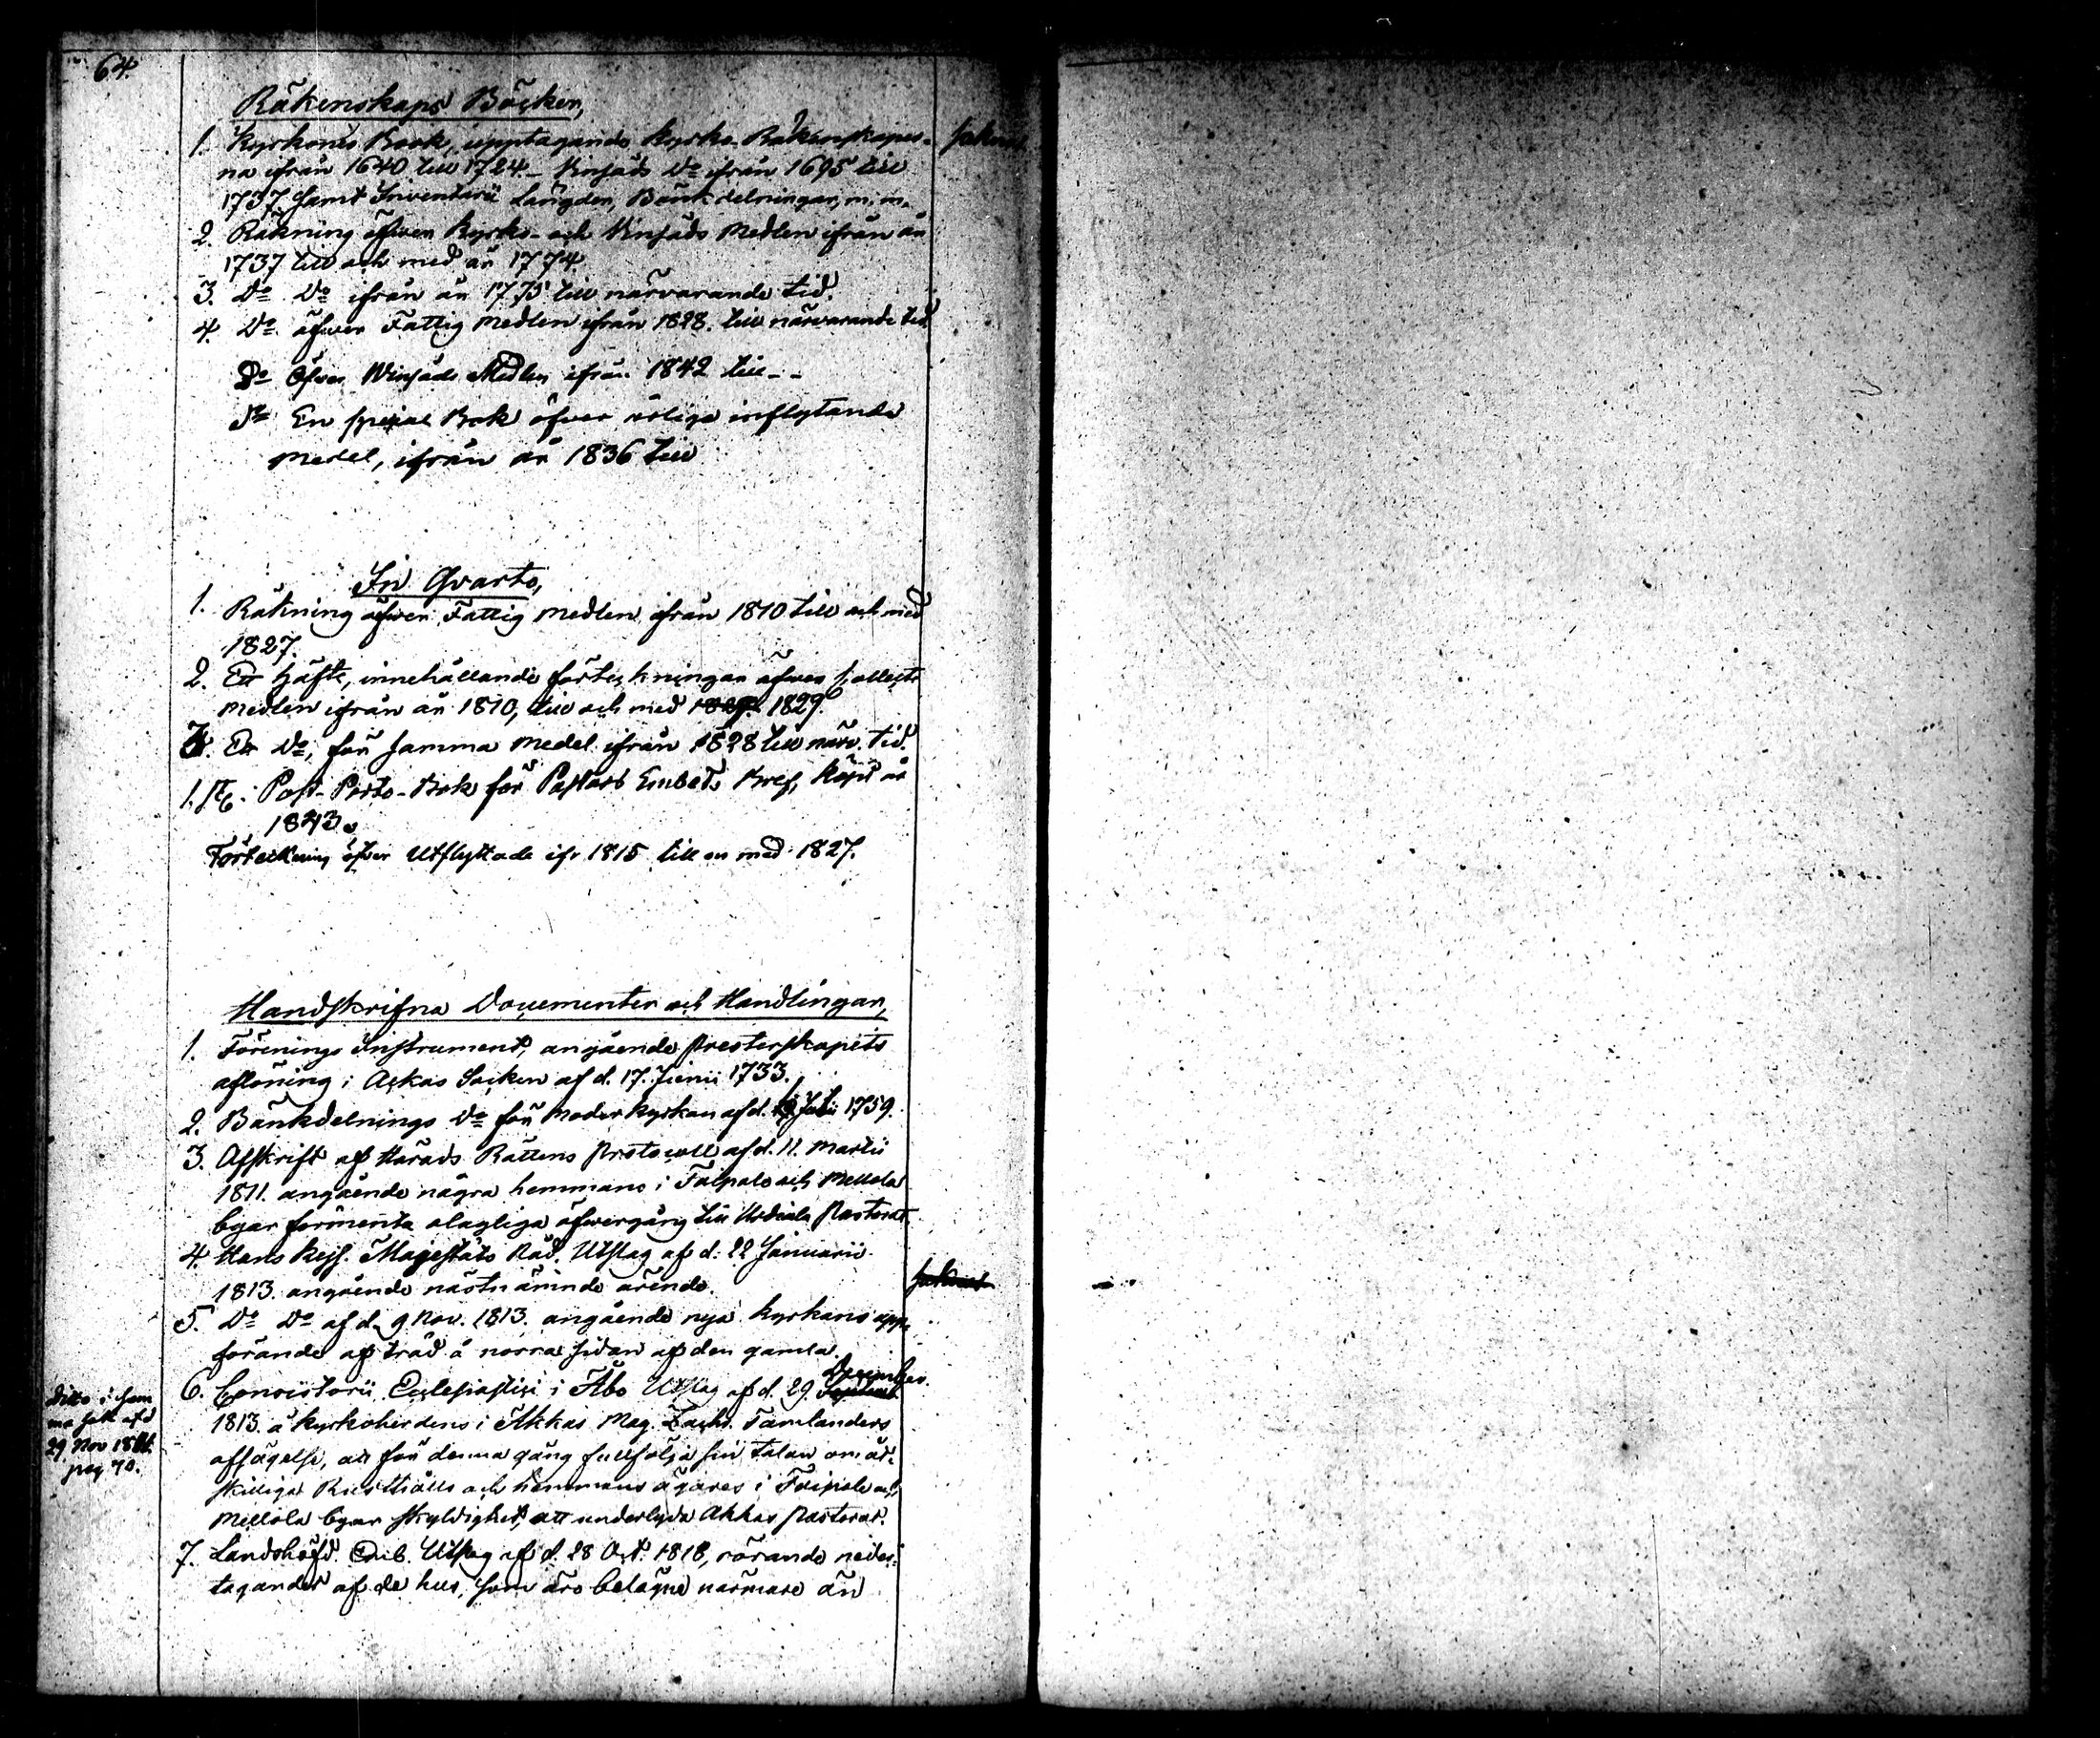 64.
Räkenskaps Böcker,
1. Kyrkones Book, upptagande Kyrko-Räkenskaper-
na ifrån 1640 till 1724 - Vinsäds Do ifrån 1695 till
1737 samt Inventarii Längder, Bänkdelningar, m. m.
2. Räkning öfwer Kyrko- och Vinsäds Medlen ifrån år
1737 till och med år 1774.
3. Do Do ifrån år 1775 till närvarande tid.
4. Do öfwer Fattig Medlen ifrån 1828. till närvarande tid.
Do Öfver Winsäds Medlen ifrån 1842 till - -
En special Bok öfver årliga inflytande
medel, ifrån år 1836 till
In Qvarto,
1. Räkning öfwer Fattig Medlen ifrån 1810 till och med
1827.
2. Ett Häfte, innehållande förteckningar öfwer Collect
Medlen ifrån år 1810, till och med 1829.
3. Ett Do, för samma Medel ifrån 1828 till närv. tid.
1. St. Post-Porto-Bok för Pastors Embets Bref, köpt år
1843.
Förteckning öfver Utflyttade ifr 1815 till en med 1827.
Handskrifna Documenter och Handlingar,
1. Förenings Instrument, angående Presterskapets
aflöning i Ackas Socken af d. 17. Junii 1733.
2. Bänkdelnings Do för Moderkyrkan af d. Julii 1759.
3. Afskrift af Härads Rättens Protocoll af d. 11. Martii
1811. angående några hemmans i Taipale och Mellola
byar förmenta olagliga öfwergång till Urdiala Pastorat.
4. Hans Kejs. Majestäts Nåd. Utslag af d. 22 Januarii
1813. angående nästnämnde ärende.
5. Do Do af d. 9 Nov. 1813. angående nya kyrkans upp-
förande af träd å norra sidan af den gamla.
6. Consistorii Ecclesiastici i Åbo Utslag af d. 29. December
1813. å kyrkoherdens i Akkas Mag. Zachr. Tamlanders
afsägelse, att för denna gång fullfölja sin talan om åt-
skilliga Rusthålls och hemmans ägares i Taipale och
Mellola byar skyldighet, att underlyda Akkas Pastorat.
ditto i sam
ma sak af d
29 Nov
pag 70.
7. Landshöfd. Emb. Utslag af d. 28 Oct. 1818, rörande neder-
tagandet af de hus, som äro belägne närmare än